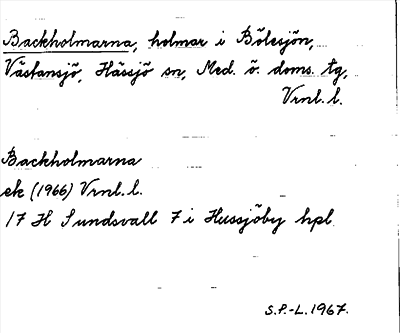 Backholmarna, holmar i Bölesjön,
Västansjö, Hässjö sn, Med. ö. doms. tg,
Vrnl. l.
Backholmarna
ek (1966) Vrnl. l.
17 H Sundsvall 7 i Hussjöby hpl
S.P.-L. 1967.